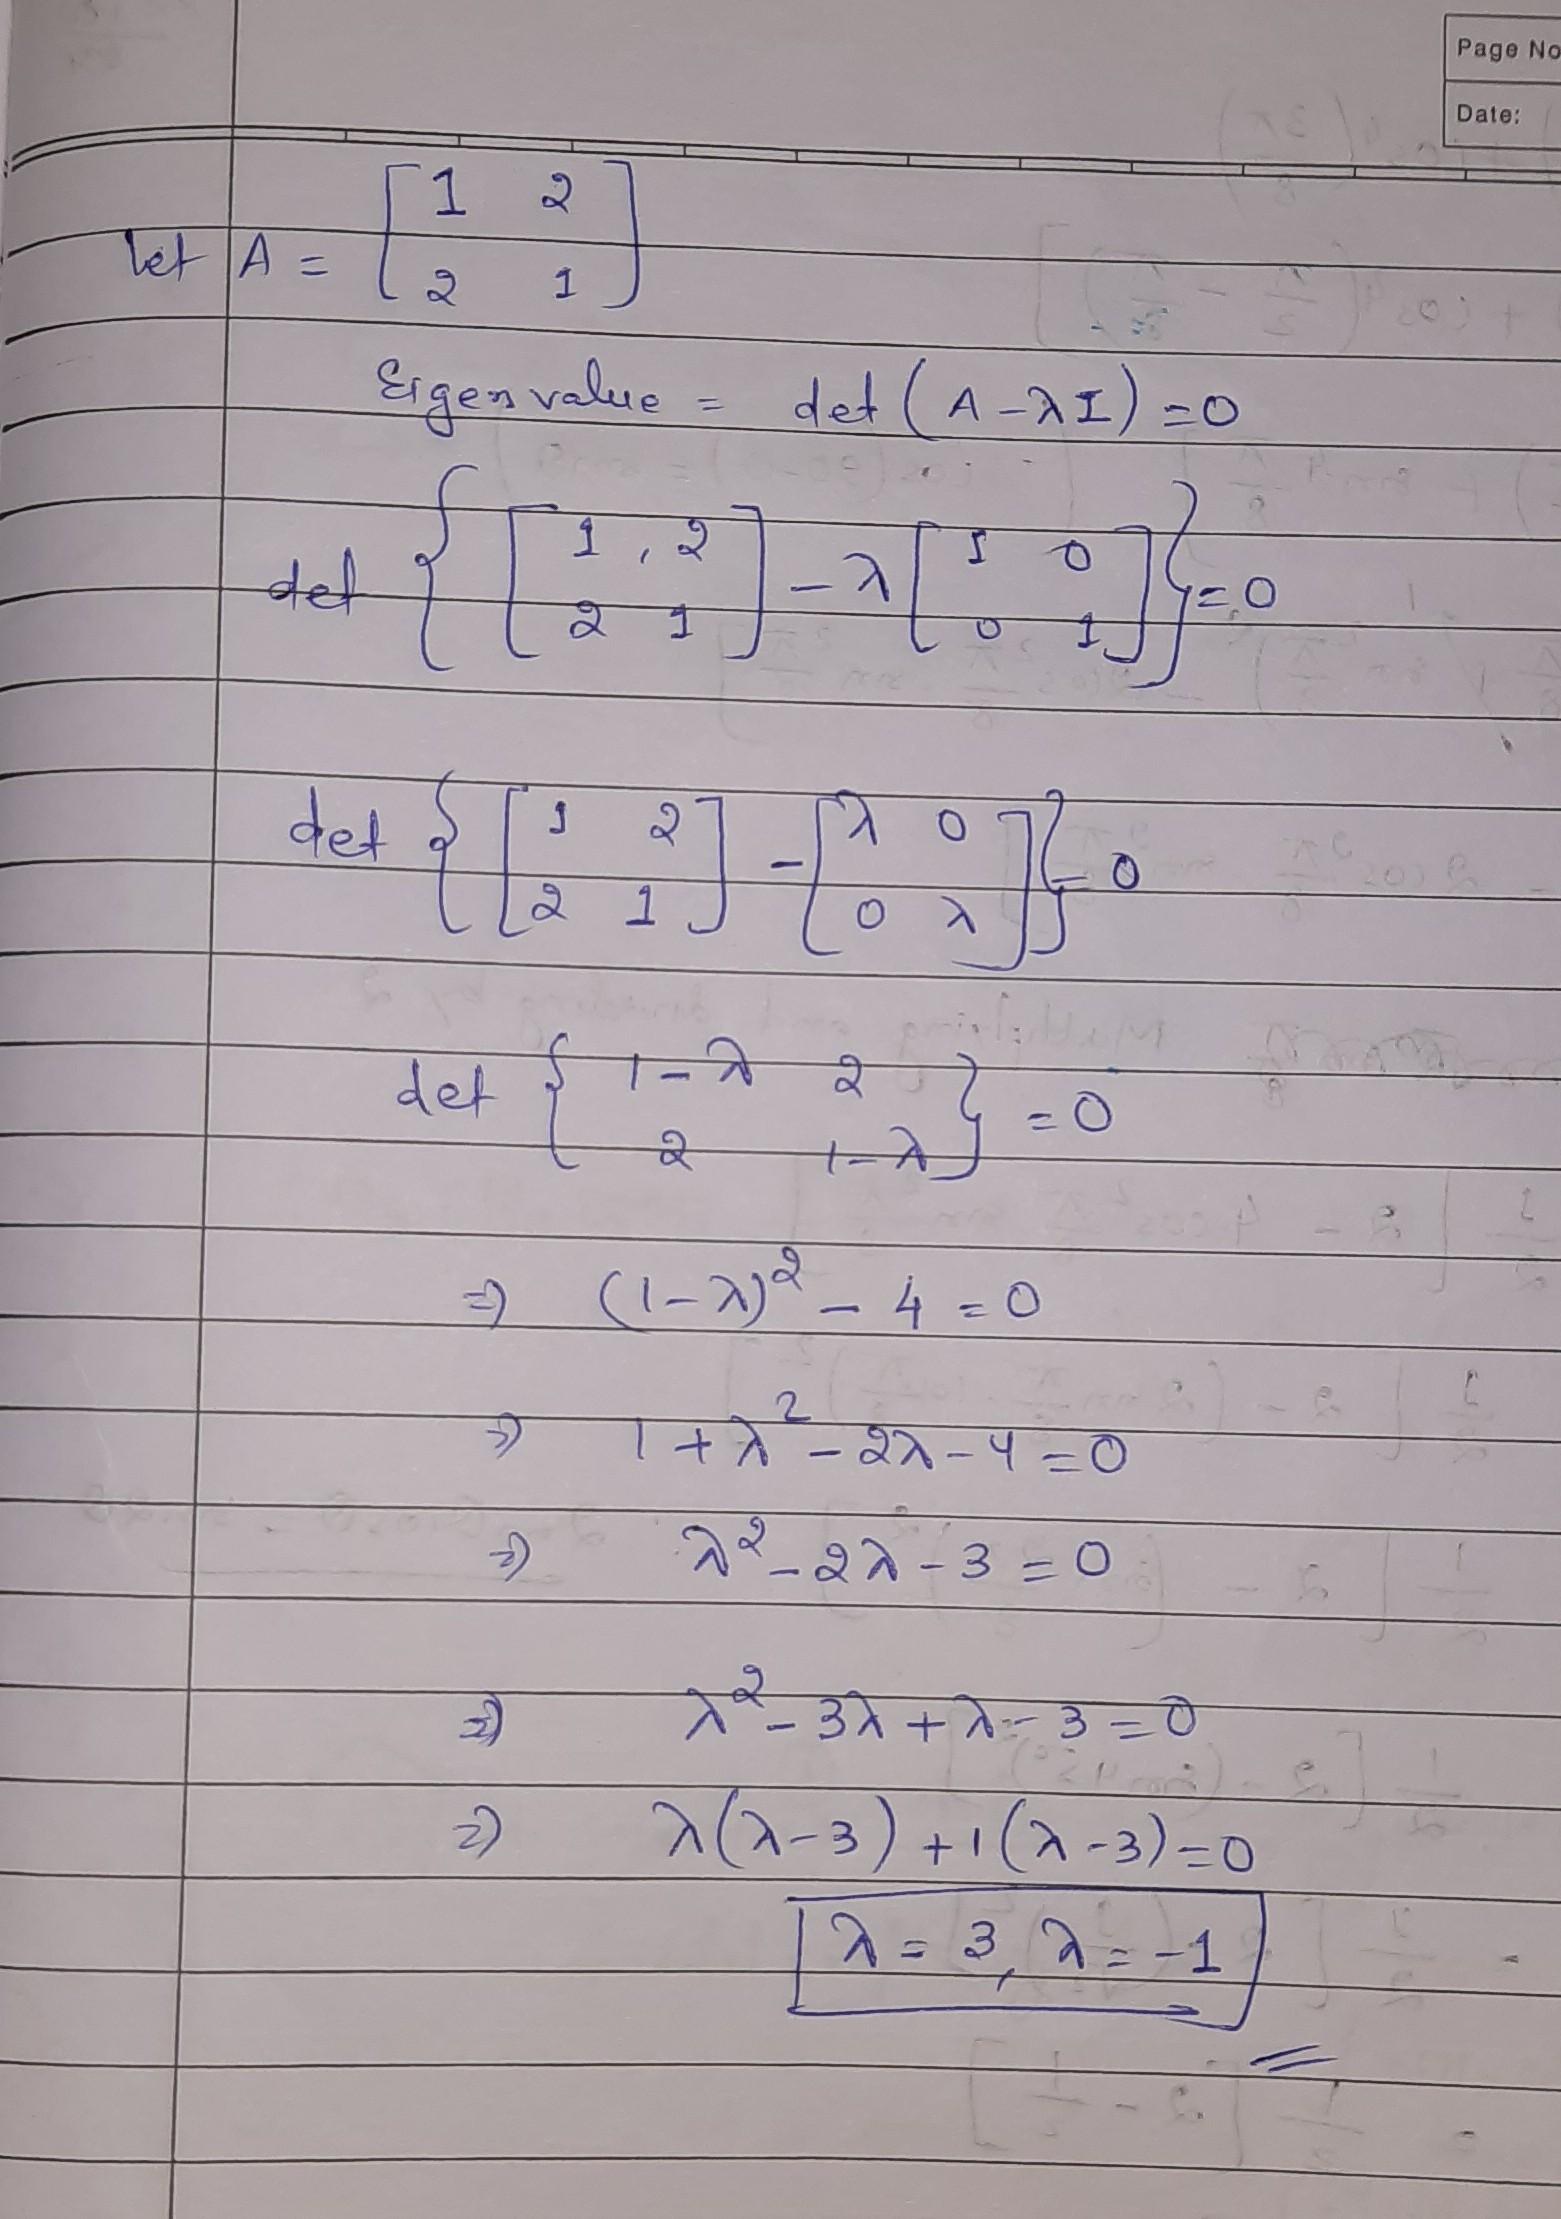 Page No
Date:
let A = [1 2
2 1]
Eigen value = det (A - λI) = 0
det { [1, 2
2 1] - λ [1 0
0 1] } = 0
det { [1 2
2 1] - [λ 0
0 λ] } = 0
det { 1-λ 2
2 1-λ } = 0
⇒ (1-λ)² - 4 = 0
⇒ 1 + λ² - 2λ - 4 = 0
⇒ λ² - 2λ - 3 = 0
⇒ λ² - 3λ + λ - 3 = 0
⇒ λ(λ-3) + 1(λ-3) = 0
λ = 3, λ = -1